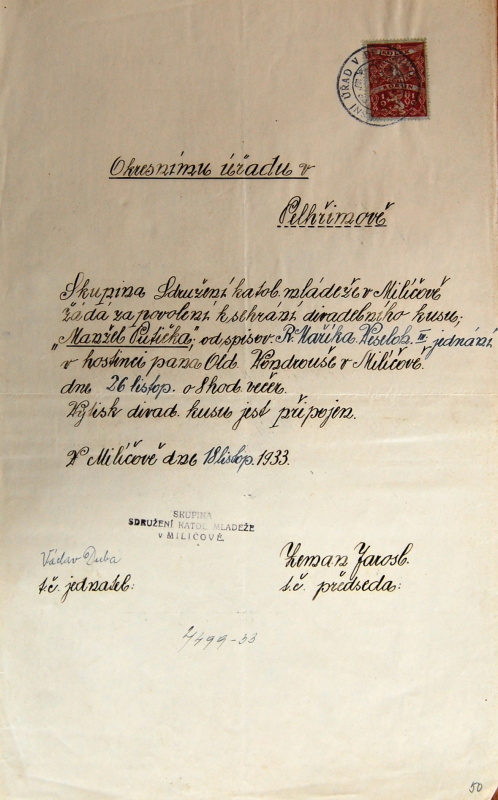 Okresnímu úřadu v
Pelhřimově
Skupina Sdružení katol. mládeže v Milíčově
žádá za povolení k sehrání divadelního kusu;
„Manžel Putička"; od spisov. R. Maříka. Veseloh. III. jednání
v hostinci pana Old. Vondrouše v Milíčově.
dne 26 listop. o 8 hod. večer.
Výtisk divad. kusu jest připojen.
V Milíčově dne 18 listop. 1933.
SKUPINA
SDRUŽENÍ KATOL. MLADEŽE
V MILIČOVĚ
Václav Duba
t.č. jednatel:
Zeman Jarosl.
t.č. předseda:
499-33
50